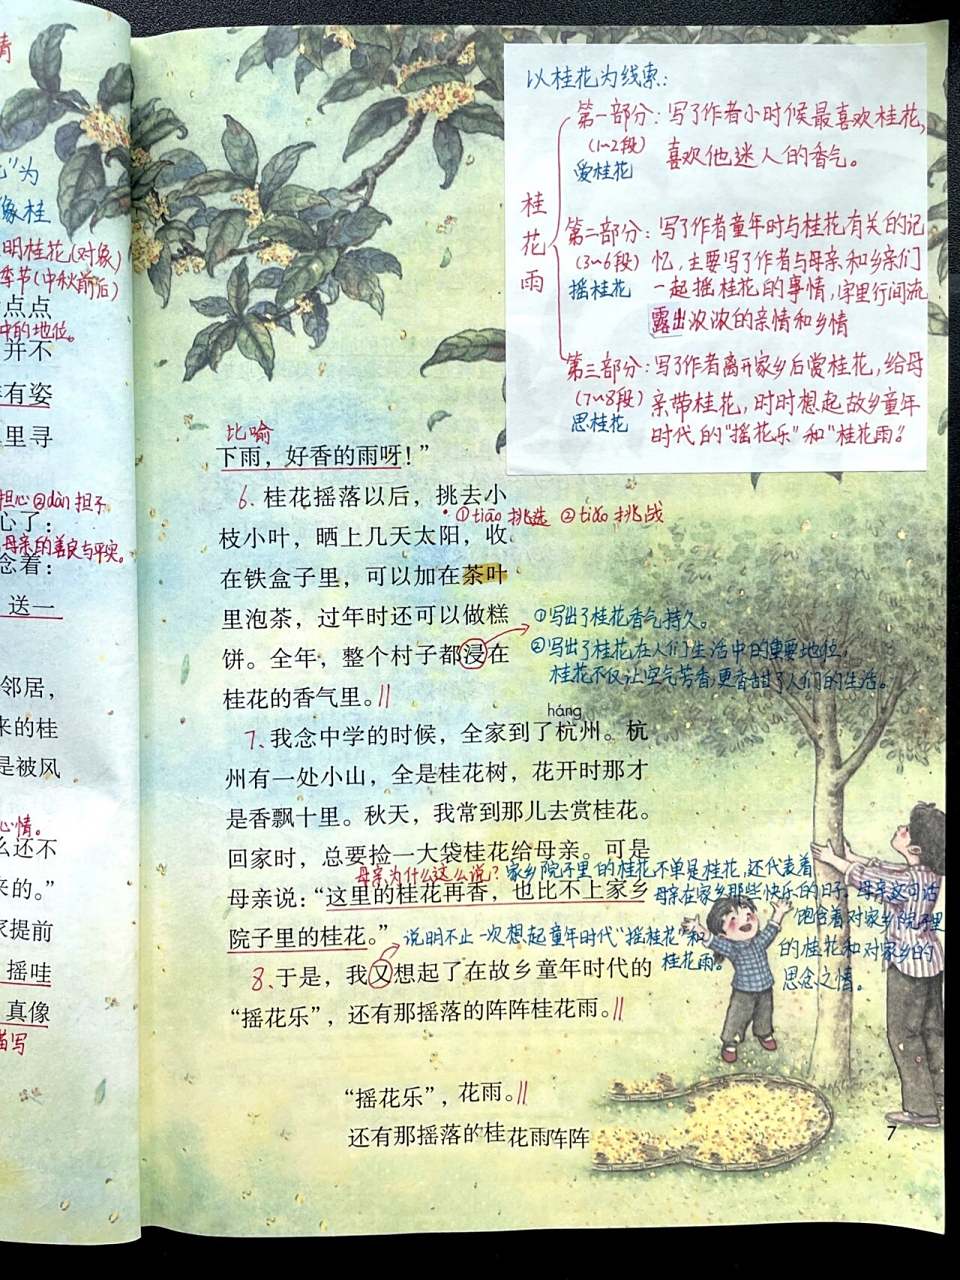 情
”为
像桂
明桂花(对象)
季节(中秋前后)
点点
中的地位。
开不
有姿
里寻
担心②dàn 担子
心了:
母亲的善良与平实。
念着:
送一
邻居,
来的桂
是被风
心情。
么还不
来的。”
家提前
摇哇
真像
描写
以桂花为线索:
桂花雨
第一部分:写了作者小时候最喜欢桂花,
(1~2段) 喜欢他迷人的香气。
爱桂花
第二部分:写了作者童年时与桂花有关的记
(3~6段) 忆,主要写了作者与母亲和乡亲们
摇桂花 一起摇桂花的事情,字里行间流
露出浓浓的亲情和乡情
第三部分:写了作者离开家乡后赏桂花,给母
(7~8段) 亲带桂花,时时想起故乡童年
思桂花 时代的“摇花乐”和“桂花雨”
比喻
下雨,好香的雨呀!”
6. 桂花摇落以后,挑去小
①tiāo 挑选 ②tiǎo 挑战
枝小叶,晒上几天太阳,收
在铁盒子里,可以加在茶叶
里泡茶,过年时还可以做糕
①写出了桂花香气持久。
饼。全年,整个村子都浸在
②写出了桂花在人们生活中的重要地位,
桂花不仅让空气芳香,更香甜了人们的生活。
桂花的香气里。
háng
7. 我念中学的时候,全家到了杭州。杭
州有一处小山,全是桂花树,花开时那才
是香飘十里。秋天,我常到那儿去赏桂花。
回家时,总要捡一大袋桂花给母亲。可是
母亲为什么这么说?家乡院子里的桂花不单是桂花,还代表着
母亲说:“这里的桂花再香,也比不上家乡
母亲在家乡那些快乐的日子,母亲这句话
饱含着对家乡院子里
的桂花和对家乡的
思念之情。
院子里的桂花。”
说明不止一次想起童年时代“摇桂花”和
桂花雨。
8. 于是,我又想起了在故乡童年时代的
“摇花乐”,还有那摇落的阵阵桂花雨。
“摇花乐”,花雨。
还有那摇落的桂花雨阵阵
7